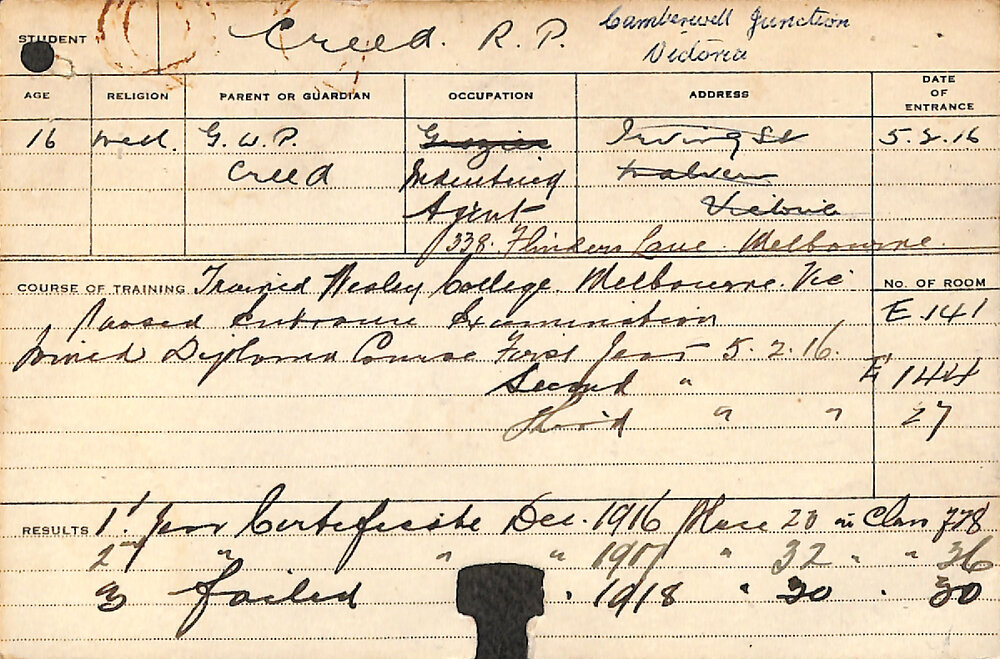 STUDENT Creed. R. P. Camberwell Junction
Victoria
AGE RELIGION PARENT OR GUARDIAN OCCUPATION ADDRESS DATE OF ENTRANCE
16 Meth. G. W. P. Grazier Irving St 5.2.16
Creed Indenting Malvern
Agent Victoria
338. Flinders Lane. Melbourne.
COURSE OF TRAINING Trained Wesley College. Melbourne. Vic No. OF ROOM
Passed Entrance Examination E.141
Joined Diploma Course First Year 5.2.16.
Second " E 144
Third " " 27
RESULTS 1st Year Certificate Dec. 1916 Place 20 in Class
2nd " " " 1917 " 32 " " 36
3 failed " 1918 " 30 " 30